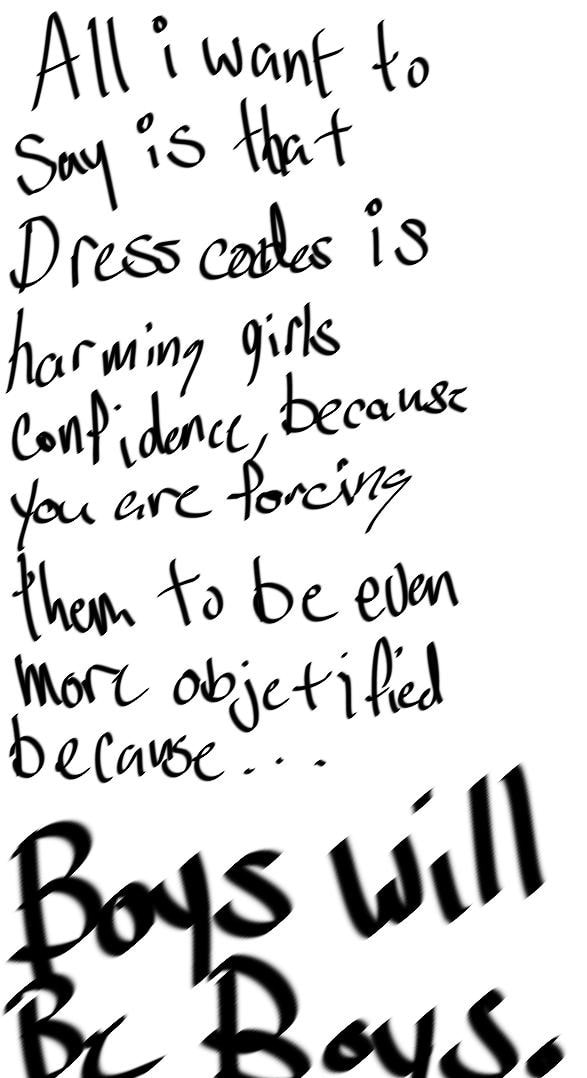 All i want to
Say is that
Dress codes is
harming girls
confidence, because
you are forcing
them to be even
more objetified
because...
Boys will
Be Boys.